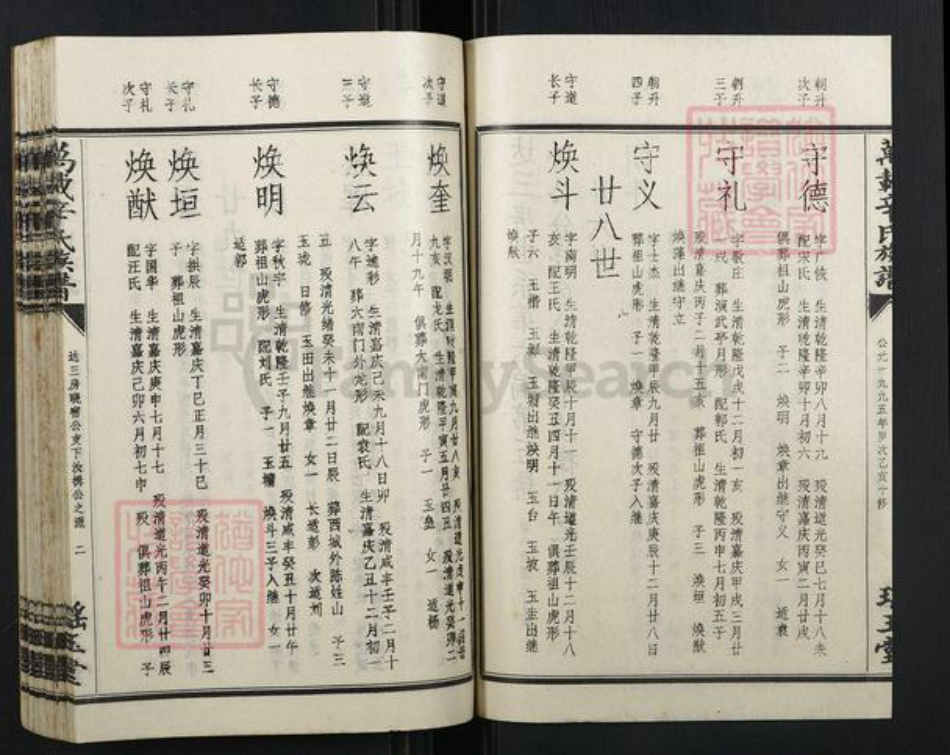 朝升
次子
守德
字广俟 生清乾隆辛卯八月十九 殁清道光癸巳七月十八未
配宋氏 生清乾隆辛卯十月初六 殁清嘉庆丙寅二月廿戌
俱葬祖山虎形 子二 焕明 焕章出继守义 女一 适袁
朝升
三子
守礼
字敬庄 生清乾隆戊戌十二月初一亥 殁清嘉庆甲戌三月廿
一戌 葬演武亭月形 配郭氏 生清乾隆丙申七月初五午
殁清嘉庆丙子二月十五亥 葬祖山虎形 子三 焕垣 焕猷
焕藻出继守立
朝升
四子
守义
字士杰 生清乾隆甲辰九月廿 殁清嘉庆庚辰十二月廿八日
葬祖山虎形 子一 焕章 守德次子入继
廿八世
守道
长子
焕斗
字南明 生清乾隆甲辰十月十一 殁清道光壬辰十二月十八
亥 配王氏 生清乾隆癸丑四月十一日午 俱葬祖山虎形
子六 玉楷 玉彩 玉榴出继焕明 玉台 玉坡 玉圭出继
焕猷
公元一九九五年岁次乙亥十修
守道
次子
焕奎
字汉明 生清乾隆甲寅九月廿八亥 殁清道光庚申十一月廿
九亥 配龙氏 生清乾隆甲寅五月廿四丑 殁清道光癸卯二
月十九午 俱葬大南门虎形 子一 玉垒 女一 适杨
守道
三子
焕云
字增彩 生清嘉庆己未九月十八日卯 殁清咸丰壬子二月十
八午 葬大南门外龙形 配袁氏 生清嘉庆乙丑十二月初一
丑 殁清光绪癸未十一月廿二日辰 葬西城外陈姓山 子三
玉珑 日修 玉田出继焕章 女一 长适彭 次适刘
守德
长子
焕明
字秋宇 生清乾隆壬子九月廿五 殁清咸丰癸丑十月午午
葬祖山虎形 配刘氏 子一 玉榴 焕斗三子入继 女一
适郭
守礼
长子
焕垣
字拱辰 生清嘉庆丁巳正月三十巳 殁清道光癸卯十月廿三
子 葬祖山虎形
守礼
次子
焕猷
字国华 生清嘉庆庚申七月十七 殁清道光丙午二月廿四辰
配汪氏 生清嘉庆己卯六月初七申 殁 俱葬祖山虎形 子
萬載辛氏族譜
达三房晓窗公支下汝楫公之派 二
瑶玉堂
FamilySearch